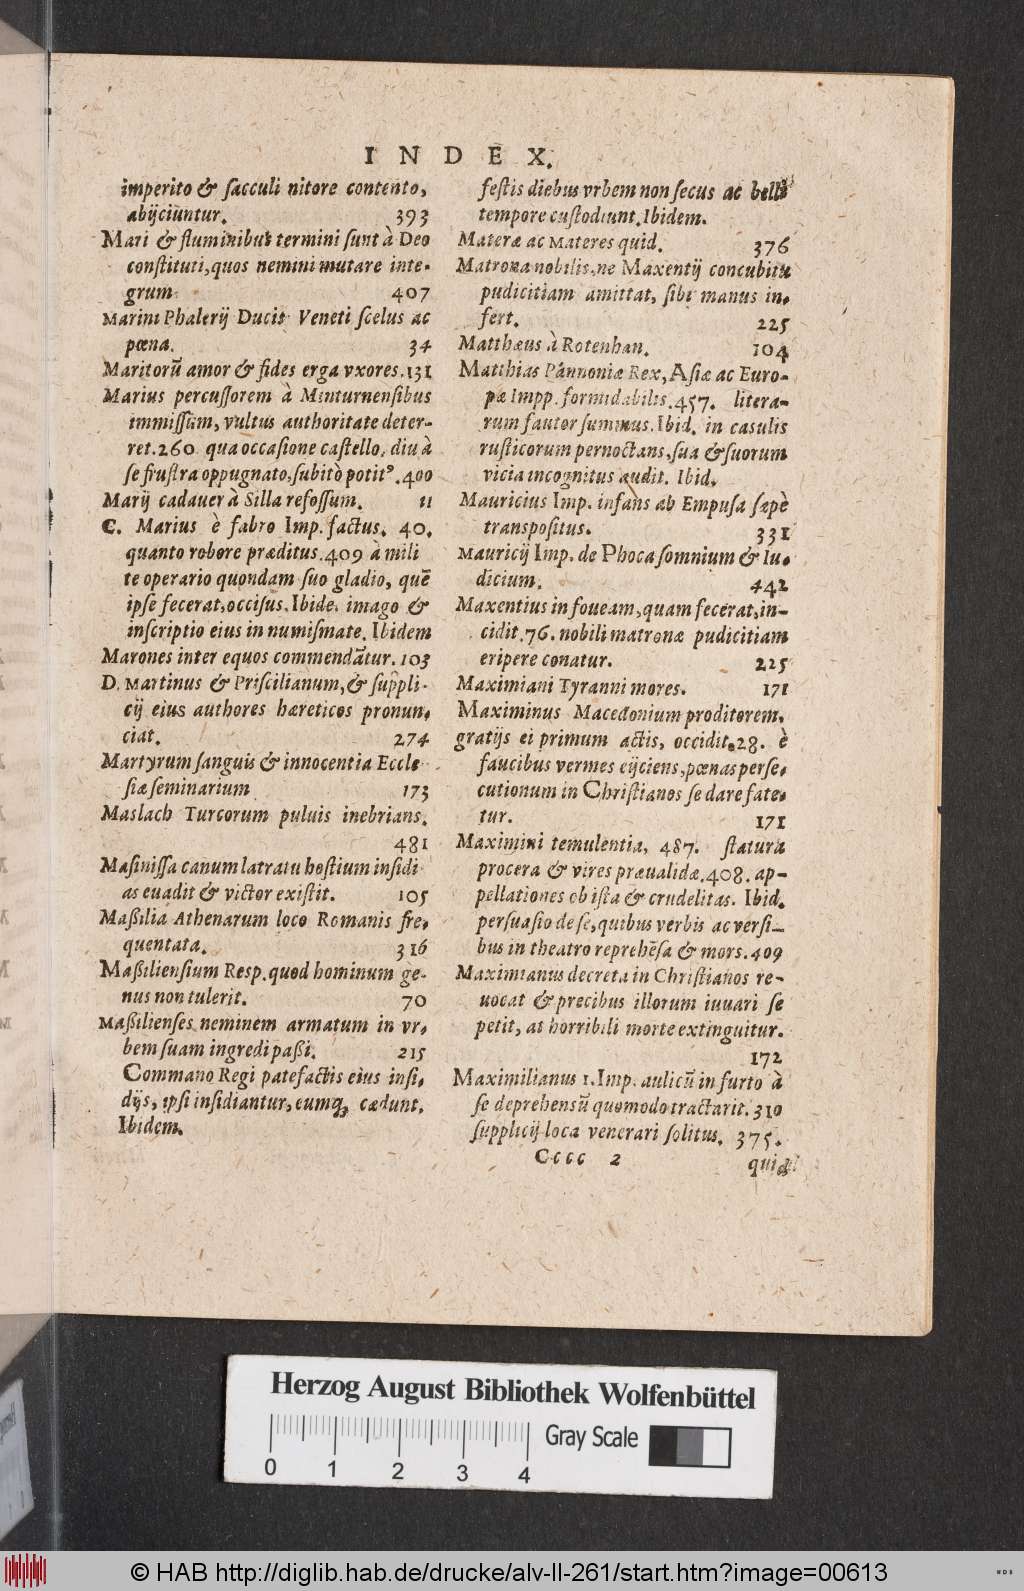 INDEX.
imperito & sacculi nitore contento,
abijciuntur. 393
Mari & fluminibus termini sunt à Deo
constituti, quos nemini mutare inte-
grum 407
Marini Phalerij Ducis Veneti scelus ac
pœna. 34
Maritorũ amor & fides erga vxores. 131
Marius percussorem à Minturnensibus
immissum, vultus authoritate deter-
ret. 260 qua occasione castello, diu à
se frustra oppugnato, subitò potitꝰ. 400
Marij cadauer à Silla refossum. 11
C. Marius è fabro Imp. factus. 40.
quanto robore præditus. 409 à mili
te operario quondam suo gladio, quẽ
ipse fecerat, occisus. Ibide. imago &
inscriptio eius in numismate. Ibidem
Marones inter equos commendãtur. 103
D. Martinus & Priscilianum, & suppli-
cij eius authores hæreticos pronun-
ciat. 274
Martyrum sanguis & innocentia Eccle
siæ seminarium 173
Maslach Turcorum puluis inebrians.
481
Masinissa canum latratu hostium insidi
as euadit & victor existit. 105
Maßilia Athenarum loco Romanis fre-
quentata. 316
Maßiliensium Resp. quod hominum ge-
nus non tulerit. 70
Maßilienses neminem armatum in vr-
bem suam ingredi paßi. 215
Commano Regi patefactis eius insi-
dijs, ipsi insidiantur, eumq́; cædunt.
Ibidem.
festis diebus vrbem non secus ac belli
tempore custodiunt. Ibidem.
Materæ ac Materes quid. 376
Matrona nobilis, ne Maxentij concubitu
pudicitiam amittat, sibi manus in-
fert. 225
Matthæus à Rotenhan. 104
Matthias Pannoniæ Rex, Asiæ ac Euro-
pæ Impp. formidabilis. 457. litera-
rum fautor summus. Ibid. in casulis
rusticorum pernoctans, sua & suorum
vicia incognitus audit. Ibid.
Mauricius Imp. infans ab Empusa sæpè
transpositus. 331
Mauricij Imp. de Phoca somnium & Iu-
dicium. 442
Maxentius in foueam, quam fecerat, in-
cidit. 76. nobili matronæ pudicitiam
eripere conatur. 225
Maximiani Tyranni mores. 171
Maximinus Macedonium proditorem,
gratijs ei primum actis, occidit. 28. è
faucibus vermes eijciens, pœnas perse-
cutionum in Christianos se dare fate-
tur. 171
Maximini temulentia, 487. statura
procera & vires præualidæ. 408. ap-
pellationes ob ista & crudelitas. Ibid.
persuasio de se, quibus verbis ac versi-
bus in theatro reprehẽsa & mors. 409
Maximianus decreta in Christianos re-
uocat & precibus illorum iuuari se
petit, at horribili morte extinguitur.
172
Maximilianus 1. Imp. aulicũ in furto à
se deprehensũ quomodo tractarit. 310
supplicij loca venerari solitus. 375.
Cccc 2
Herzog August Bibliothek Wolfenbüttel
0 1 2 3 4
Gray Scale
© HAB http://diglib.hab.de/drucke/alv-ll-261/start.htm?image=00613